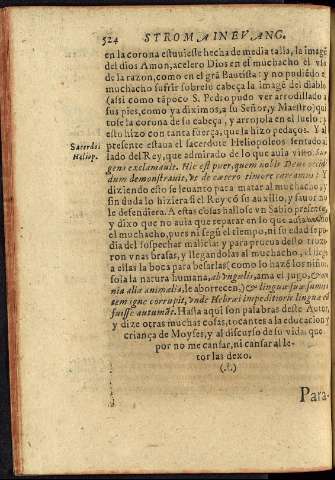 524 STROMA IN EVANG.
en la corona estuuiesse hecha de media talla, la imagẽ
del dios Amon, acelero Dios en el muchacho el vso
de la razon, como en el grã Bautista: y no pudiẽdo el
muchacho sufrir sobre su cabeça la imagẽ del diablo
(assi como tãpoco S. Pedro pudo ver arrodillado a
sus pies, como ya diximos, a su Señor, y Maestro) qui
tose la corona de su cabeça, y arrojola en el suelo: y
esto hizo con tanta fuerça, que la hizo pedaços. Y al
presente estaua el sacerdote Heliopoleos sentado al
Sacerdos
Heliop.
lado del Rey, que admirado de lo que auia visto. Sur
gens exclamauit. Hic est puer, quem nobis Deus occidẽ
dum demonstrauit, & de cætero timore careamus: Y
diziendo esto se leuanto para matar al muchacho, y
sin duda lo hiziera si el Rey cõ su auxilio, y fauor no
le defendiera. A estas cosas hallose vn Sabio presente,
y dixo que no auia que reparar en lo que auia hecho
el muchacho, pues ni segũ el tiempo, ni su edad se po
dia del sospechar malicia: y para prueua desto troxe
ron vnas brasas, y llegandolas al muchacho, el llegò
a ellas la boca para besarlas (como lo hazẽ los niños,
sola la natura humana, ab vngulis, ama el fuego, & om
nia alia animalia, le aborrecen.) & linguæ suæ summi
tem igne corrupit, vnde Hebræi impeditioris linguæ eũ
fuisse autumãt. Hasta aqui son palabras deste Autor,
y dize otras muchas cosas, tocantes a la educacion, y
criança de Moyses, y al discurso de su vida: que
por no me cansar, ni cansar al le-
tor las dexo.
(.&.)
Para-